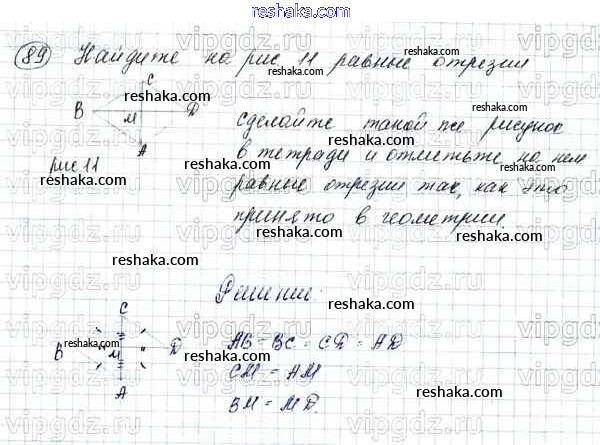 reshaka.com
89 Найдите на рис 11 равные отрезки
reshaka.com
C
B M D
A
рис 11
сделайте такой же рисунок
в тетради и отметьте на нем
равные отрезки так, как это
принято в геометрии.
Решение:
C
B M D
A
AB = BC = CD = AD
CM = AM
BM = MD.
reshaka.com
vipgdz.com